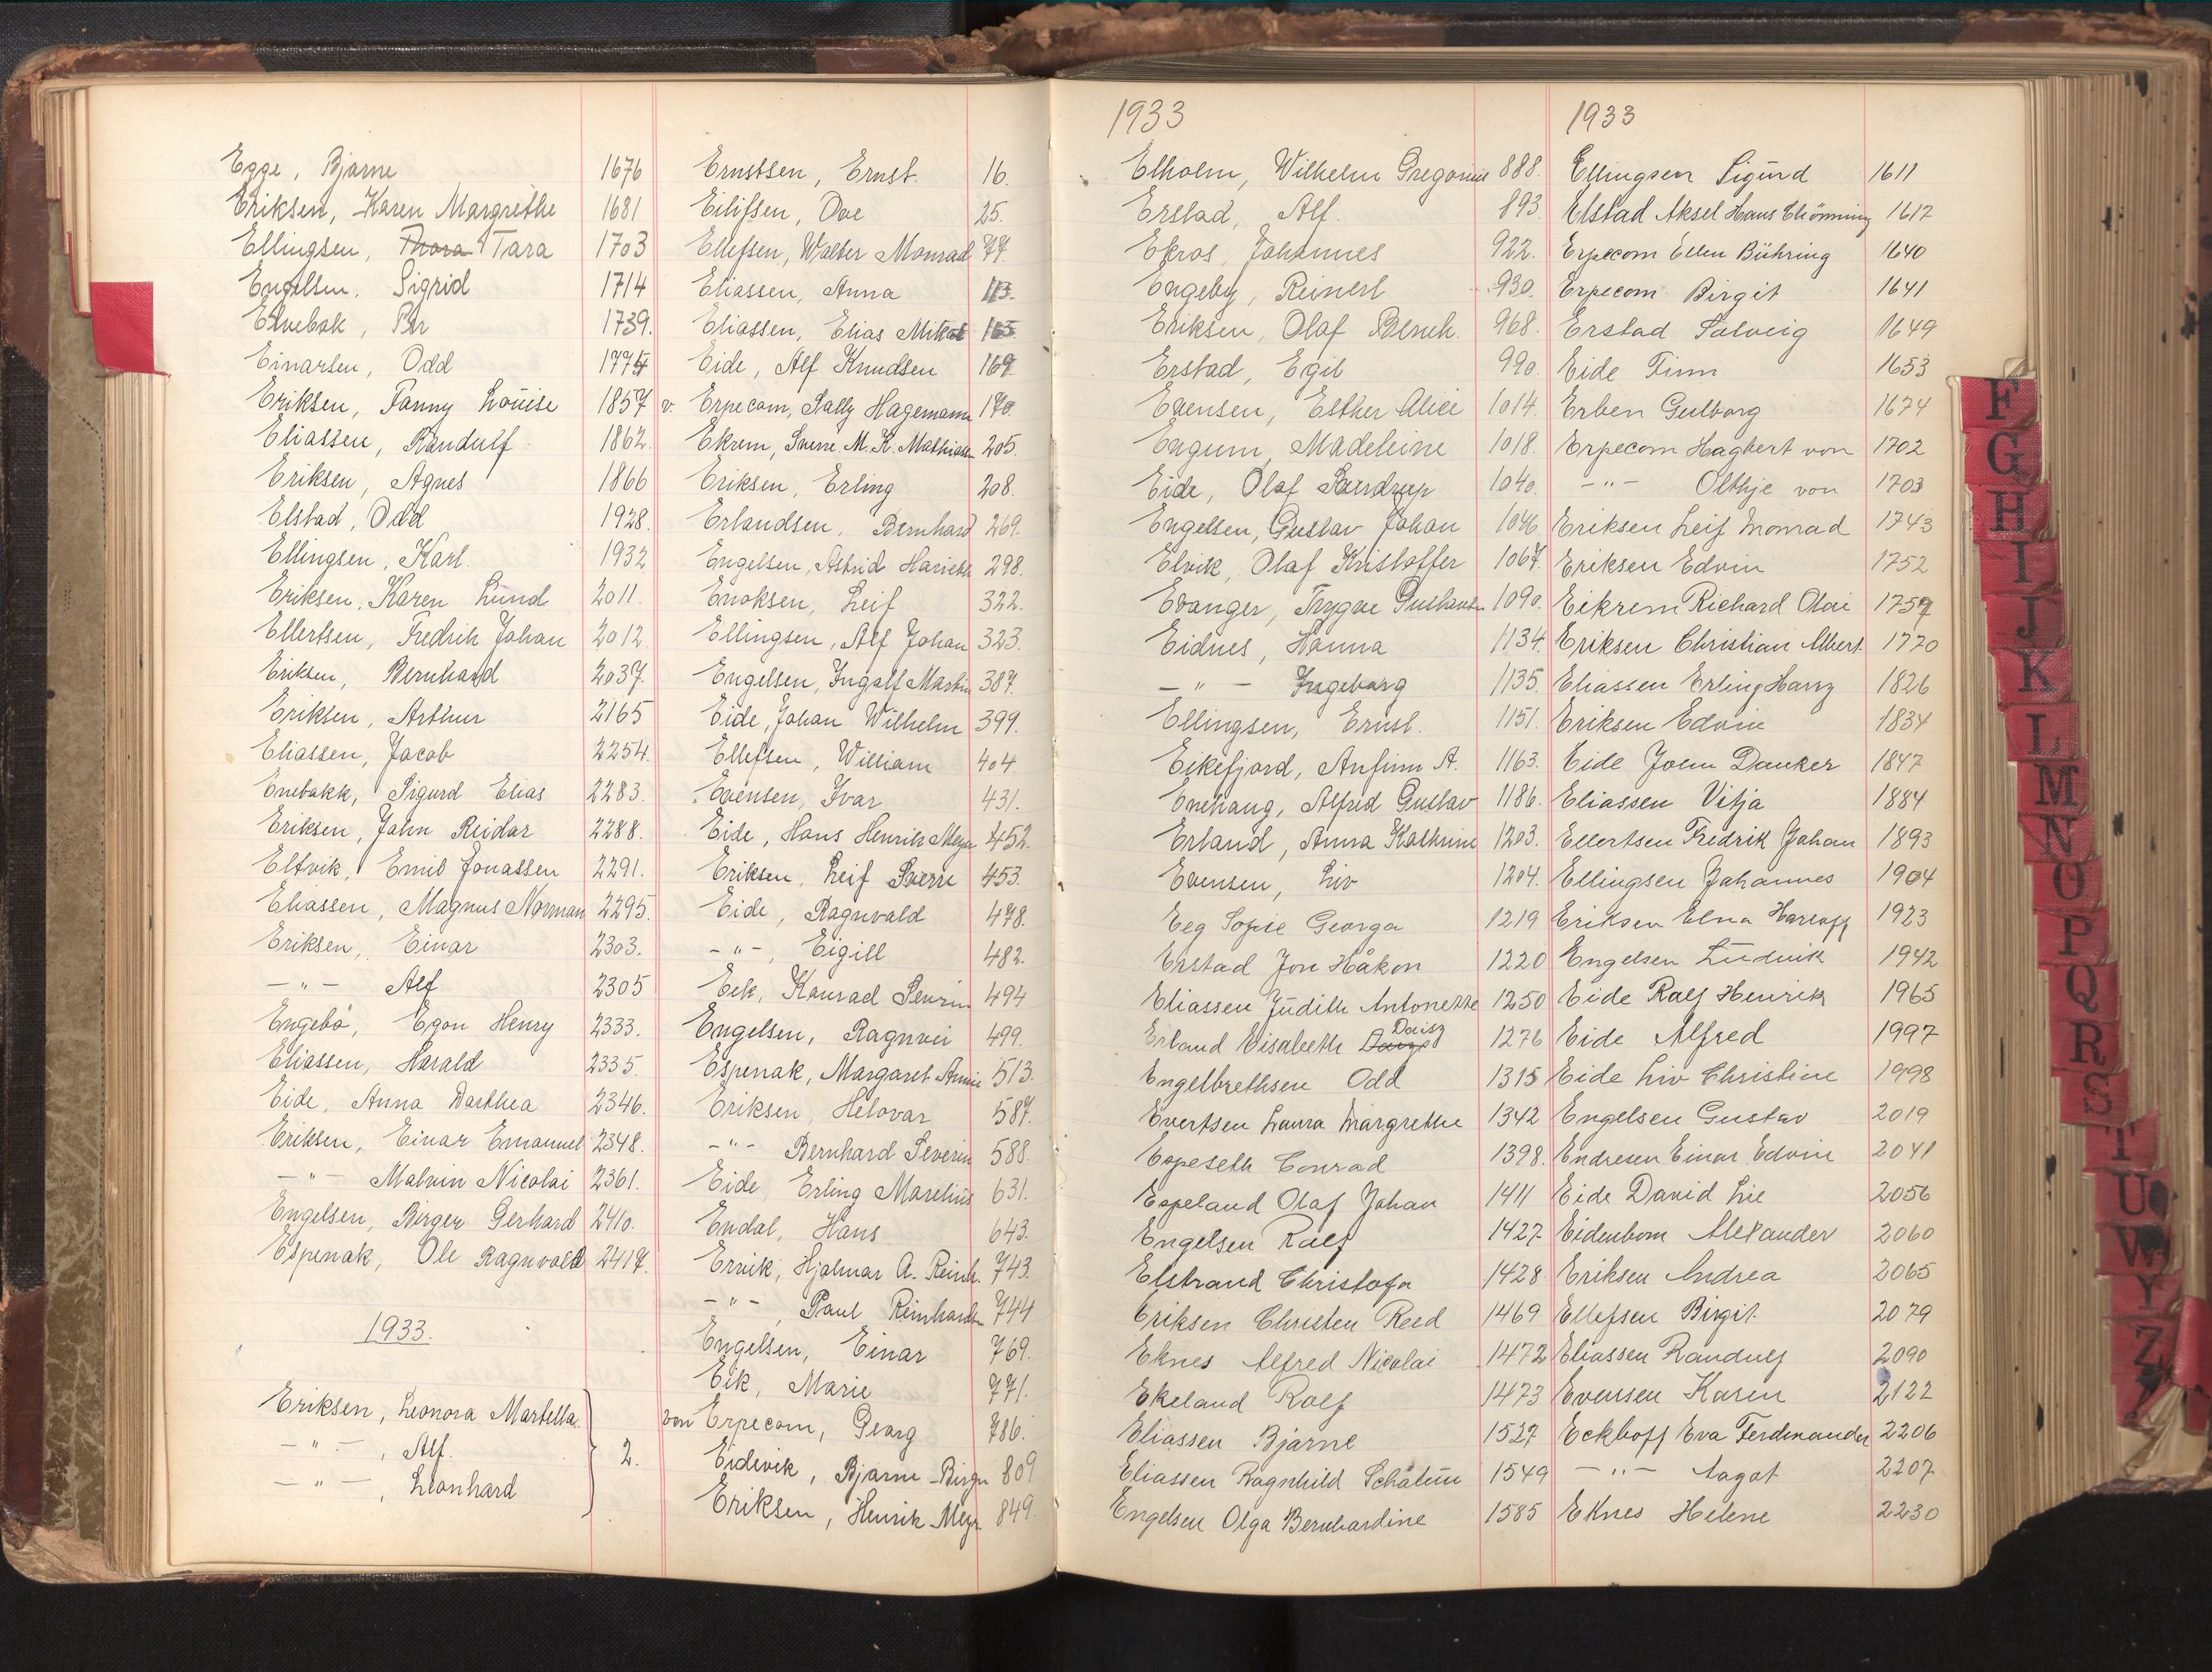 Egge, Bjarne 1676
Eriksen, Karen Margrethe 1681
Ellingsen, Thora Tara 1703
Engelsen, Sigrid 1714
Elvebak, Per 1739.
Einarsen, Odd 1774
Eriksen, Fanny Louise 1857
Eliassen, Randulf 1862.
Eriksen, Agnes 1866
Elstad, Odd 1928.
Ellingsen, Karl. 1932
Eriksen, Karen Lund 2011.
Ellertsen, Fredrik Johan 2012
Eriksen, Bernhard 2037.
Eriksen, Arthur 2165
Eliassen, Jacob 2254.
Enebakk, Sigurd Elias 2283.
Eriksen, John Reidar 2288.
Eltvik, Emil Jonassen 2291.
Eliassen, Magnus Norman 2295.
Eriksen, Einar 2303.
— " — Alf 2305
Engebö, Egon Henry 2333.
Eliassen, Harald 2335.
Eide, Anna Dorthea 2346.
Eriksen, Einar Emanuel 2348.
— " — Malvin Nicolai 2361.
Engelsen, Birger Gerhard 2410.
Espenak, Ole Ragnvald 2417.
1933.
Eriksen, Leonora Martella
— " —, Alf. 2.
— " —, Leonhard
Ernstsen, Ernst. 16.
Eilifsen, Ove 25.
Ellefsen, Walter Monrad 77.
Eliassen, Anna 113.
Eliassen, Elias Mikal 165
Eide, Alf Knudsen 169.
v. Erpecom, Sally Hagemann 170.
Ekrem, Sverre M. K. Mathias 205.
Eriksen, Erling 208.
Erlandsen, Bernhard 269.
Engelsen, Astrid Hariette 298.
Enoksen, Leif 322.
Ellingsen, Alf Johan 323.
Engelsen, Ingolf Martin 387.
Eide, Johan Wilhelm 399.
Ellefsen, William 404.
Evensen, Ivar 431.
Eide, Hans Henrik Meyer 452.
Eriksen, Leif Sverre 453.
Eide, Ragnvald 478.
— " —, Eigill 482.
Eek, Konrad Severin 494
Engelsen, Ragnvei 499.
Espenak, Margaret Annie 513.
Eriksen, Helovar 587.
— " — Bernhard Severin 588.
Eide, Erling Marelius 631.
Endal, Hans 643.
Ervik, Hjalmar A. Reinh. 743.
— " —, Paul Reinhardt 744
Engelsen, Einar 769.
Eik, Marie 771.
von Erpecom, Georg 786.
Eidevik, Bjarne Birger 809
Eriksen, Henrik Meyer 849.
1933
Elholm, Wilhelm Gregorius 888.
Erstad, Alf. 893.
Ekros, Johannes 922.
Engeby, Reinert 930.
Eriksen, Olaf Bernh. 968.
Erstad, Egil 990.
Evensen, Esther Alice 1014.
Engum, Madeleine 1018.
Eide, Olaf Sverdrup 1040.
Engelsen, Gustav Johan 1046.
Elvik, Olaf Kristoffer 1067.
Evanger, Trygve Gustavsen 1090.
Eidnes, Hanna 1134.
— " — Ingeborg 1135.
Ellingsen, Ernst. 1151.
Eikefjord, Anfinn A. 1163.
Enehaug, Alfred Gustav 1186.
Erland, Anna Kathrine 1203.
Evensen, Liv 1204.
Eeg Sofie Georga 1219
Erstad Jon Håkon 1220
Eliassen Judith Antonette 1250
Erland Elisabeth Daisy 1276
Engelbrethsen Odd 1315
Evertsen Laura Margrethe 1342
Espeseth Conrad 1398.
Espeland Olaf Johan 1411
Engelsen Ralf 1427
Elstrand Christofa 1428
Eriksen Christen Reed 1469
Eknes Alfred Nicolai 1472
Ekeland Rolf 1473
Eliassen Bjarne 1527
Eliassen Ragnhild Schåtun 1549
Engelsen Olga Bernhardine 1585
1933
Ellingsen Sigurd 1611
Elstad Aksel Hans Chönning 1612
Erpecom Ellen Bühring 1640
Erpecom Birgit 1641
Erstad Solveig 1649
Eide Finn 1653
Erben Gulborg 1674
Erpecom Hagbert von 1702
— " — Olthje von 1703
Eriksen Leif Monrad 1743
Eriksen Edvin 1752
Eikrem Richard Olai 1759
Eriksen Christian Albert 1770
Eliassen Erling Harry 1826
Eriksen Edvin 1834
Eide Joen Danker 1847
Eliassen Vitja 1884
Ellertsen Fredrik Johan 1893
Ellingsen Johannes 1904
Eriksen Elna Harloff 1923
Engelsen Ludvik 1942
Eide Ralf Henrik 1965
Eide Alfred 1997
Eide Liv Christine 1998
Engelsen Gustav 2019
Endresen Einar Edvin 2041
Eide David Lie 2056
Eidenbom Alexander 2060
Eriksen Andrea 2065
Ellefsen Birgit. 2079
Eliassen Randulf 2090
Evensen Karen 2122
Eckhoff Eva Ferdinanda 2206
— " — Aagot 2207
Eknes Helene 2230
F
G
H
I
J
K
L
M
N
O
P
Q
R
S
T
U
W
Y
Z